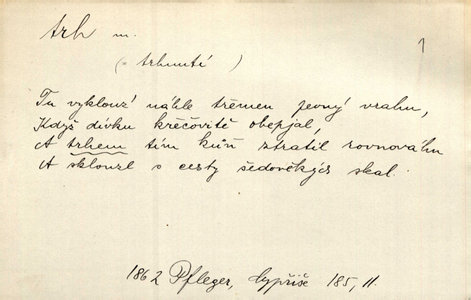 trh m.
1
(= trhnutí )
Tu vyklouz' náhle třemen pevný vrahu,
Když dívku křečovitě obepjal,
A trhem tím kůň ztratil rovnováhu
A sklouzl s cesty šedověkých skal.
1862 Pfleger, Cypřiše 185, 11.